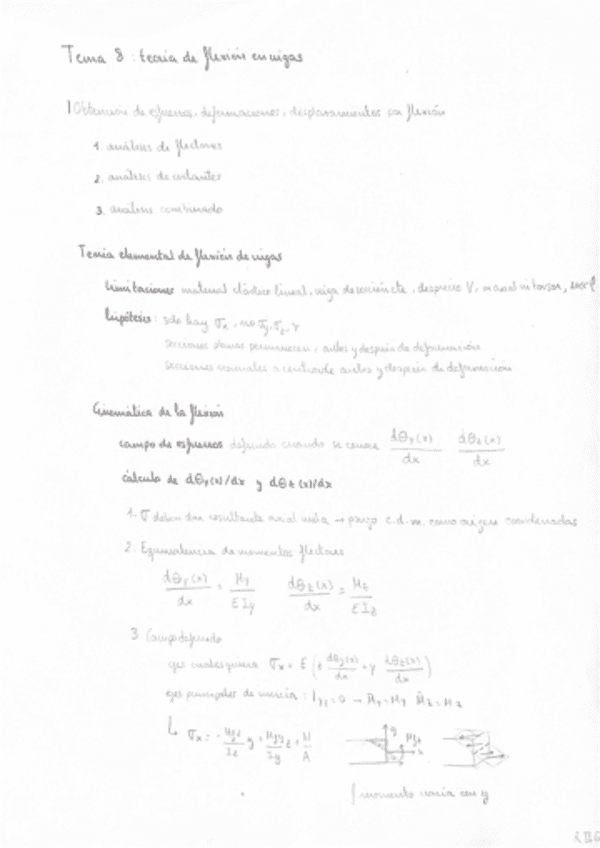 Tema 8: teoría de flexión en vigas
1 Obtención de esfuerzos, deformaciones, desplazamientos por flexión
1. análisis de flectores
2. análisis de cortantes
3. análisis combinado
Teoría elemental de flexión de vigas
limitaciones material elástico lineal, viga de sección cte, desprecio V,
hipótesis: solo hay σx, no
secciones planas permanecen, antes y después de deformación
secciones normales a centroide antes y después de deformación
Cinemática de la flexión
campo de esfuerzos definido cuando se conoce dθy(x)/dx dθz(x)/dx
cálculo de dθy(x)/dx y dθz(x)/dx
1. σ deben dar resultante axial nula → pongo c.d.m. como origen coordenadas
2. Equivalencia de momentos flectores
dθy(x)/dx = My/EIy dθz(x)/dx = Mz/EIz
3. Campo definido
ejes cualesquiera σx = E (z dθy(x)/dx - y dθz(x)/dx)
ejes principales de inercia: Iyz = 0 → M̄y = My M̄z = Mz
↳ σx = - Mz/Iz y + My/Iy z + N/A
momento varía con y